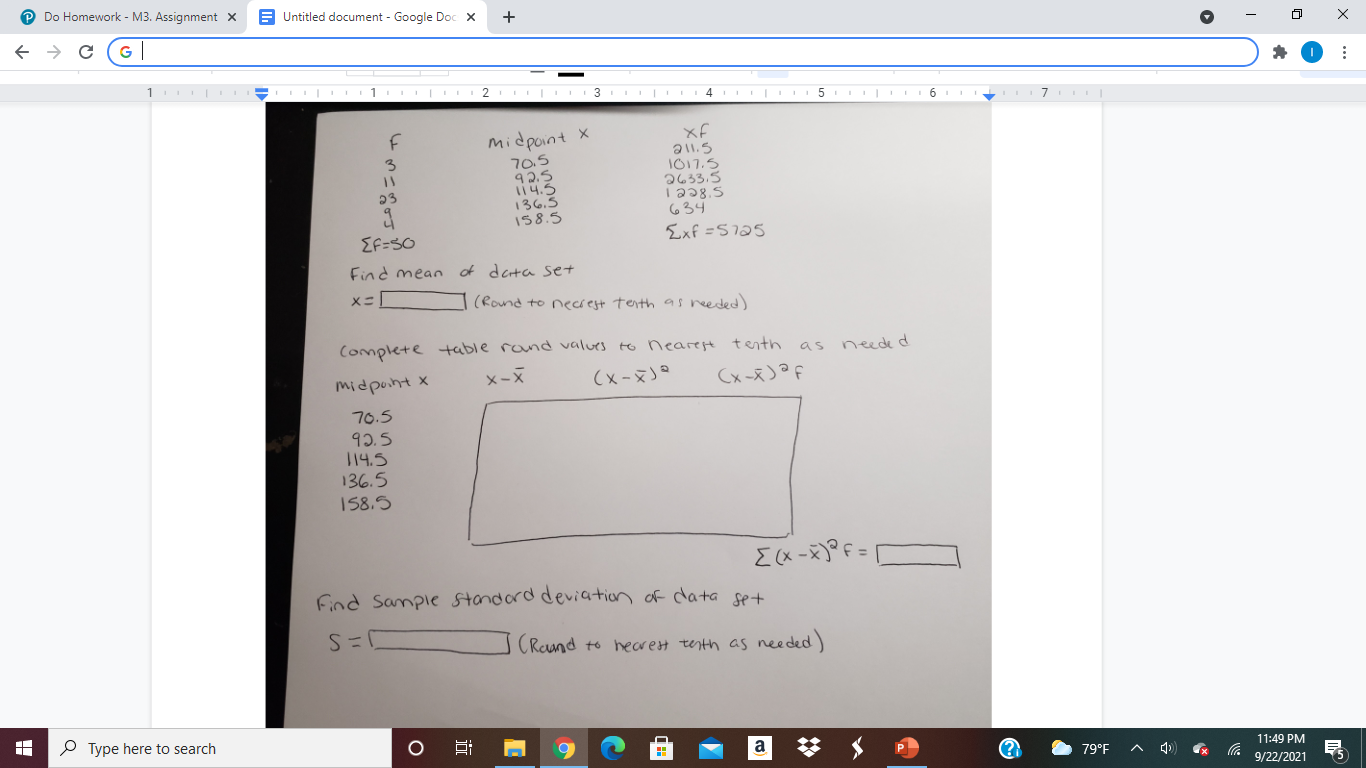 Do Homework - M3. Assignment
Untitled document - Google Doc
1 1 2 3 4 5 6 7
F midpoint x xf
3 70.5 211.5
11 92.5 1017.5
23 114.5 2633.5
9 136.5 1228.5
4 158.5 634
Σf=50 Σxf=5725
Find mean of data set
x= (Round to nearest tenth as needed)
Complete table round values to nearest tenth as needed
midpoint x x-x̄ (x-x̄)² (x-x̄)²f
70.5
92.5
114.5
136.5
158.5
Σ(x-x̄)²f=
Find sample standard deviation of data set
S= (Round to nearest tenth as needed)
Type here to search
79°F
11:49 PM
9/22/2021
5